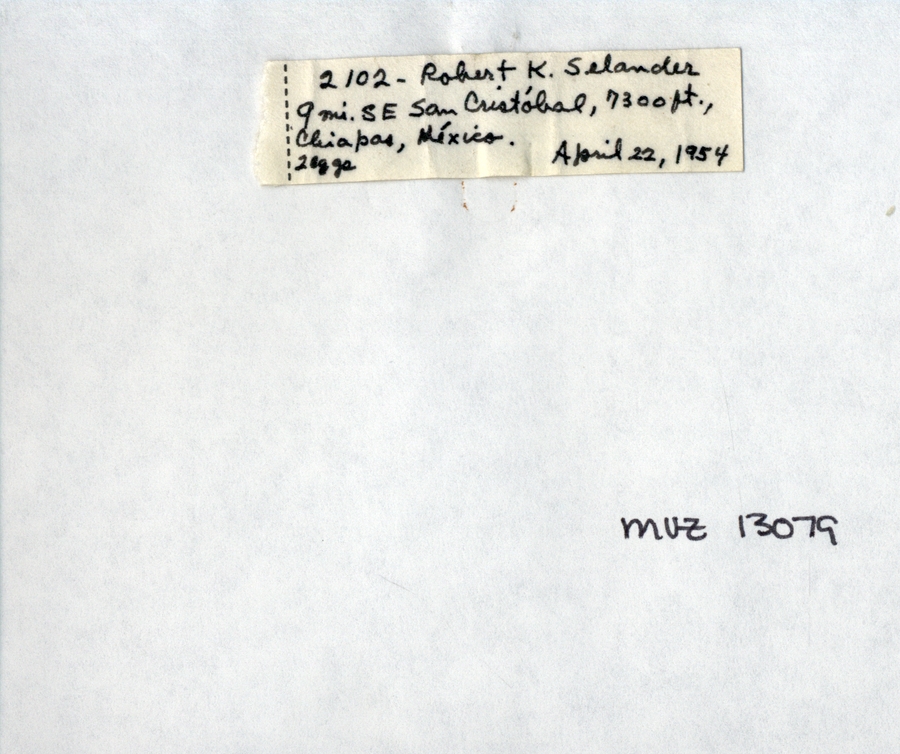 2102 - Robert K. Selander
9 mi. SE San Cristóbal, 7300 ft.,
Chiapas, México.
2 eggs April 22, 1954
MVZ 13079